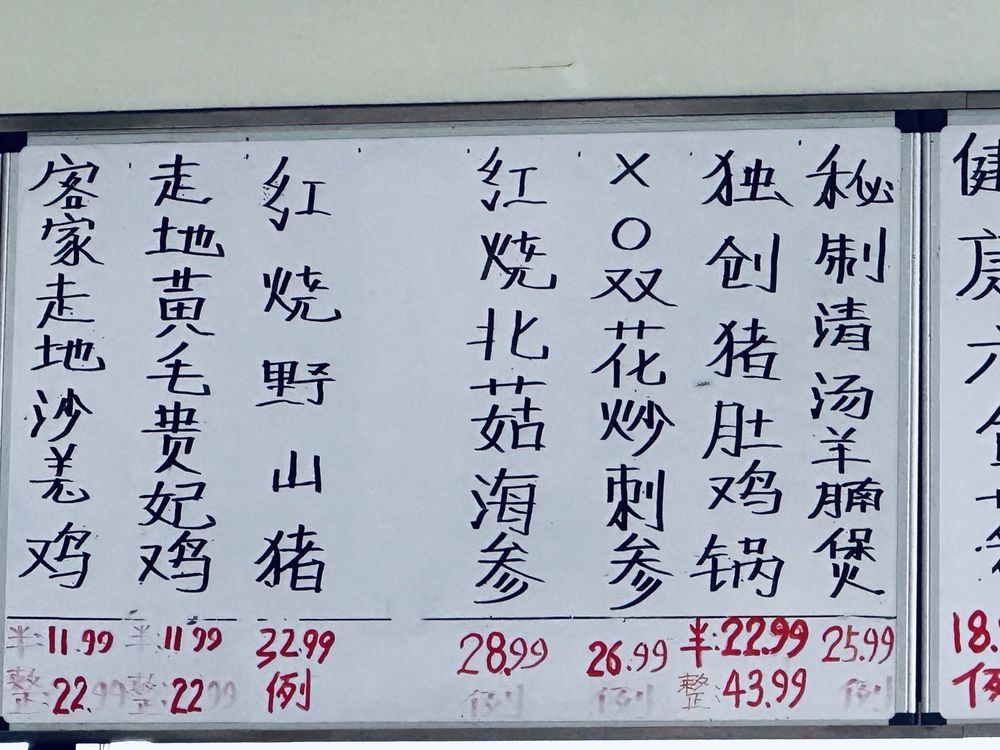 客家走地沙羌鸡
半:11.99
整:22.99
走地黄毛贵妃鸡
半:11.99
整:22.99
红烧野山猪
32.99
例
红烧北菇海参
28.99
例
XO双花炒刺参
26.99
例
独创猪肚鸡锅
半:22.99
整:43.99
秘制清汤羊腩煲
25.99
例
健康
18.
例